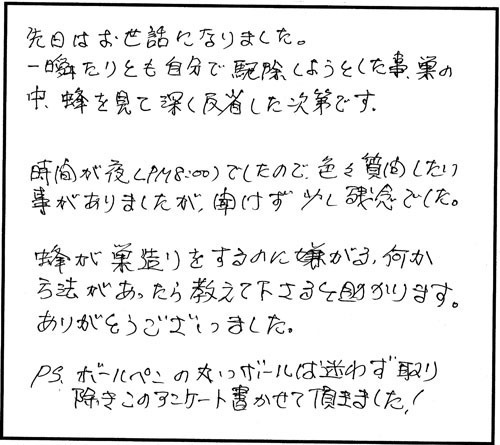 先日はお世話になりました。
一瞬たりとも自分で駆除しようとした事、巣の
中、蜂を見て深く反省した次第です。
時間が夜(PM8:00)でしたので、色々質問したい
事がありましたが、聞けず少し残念でした。
蜂が巣造りをするのに嫌がる、何か
方法があったら教えて下さると助かります。
ありがとうございました。
PS. ボールペンの丸いボールは迷わず取り
除きこのアンケート書かせて頂きました!